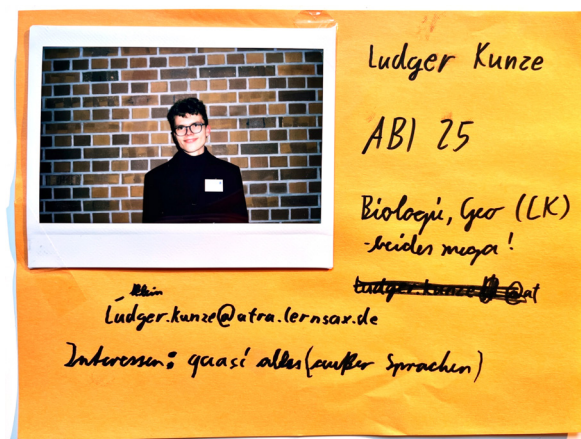 Ludger Kunze
ABI 25
Biologie, Geo (LK)
- beides mega!
ludger.kunze @at
klein
Ludger.kunze@atra.lernsax.de
Interessen: quasi alles (außer Sprachen)